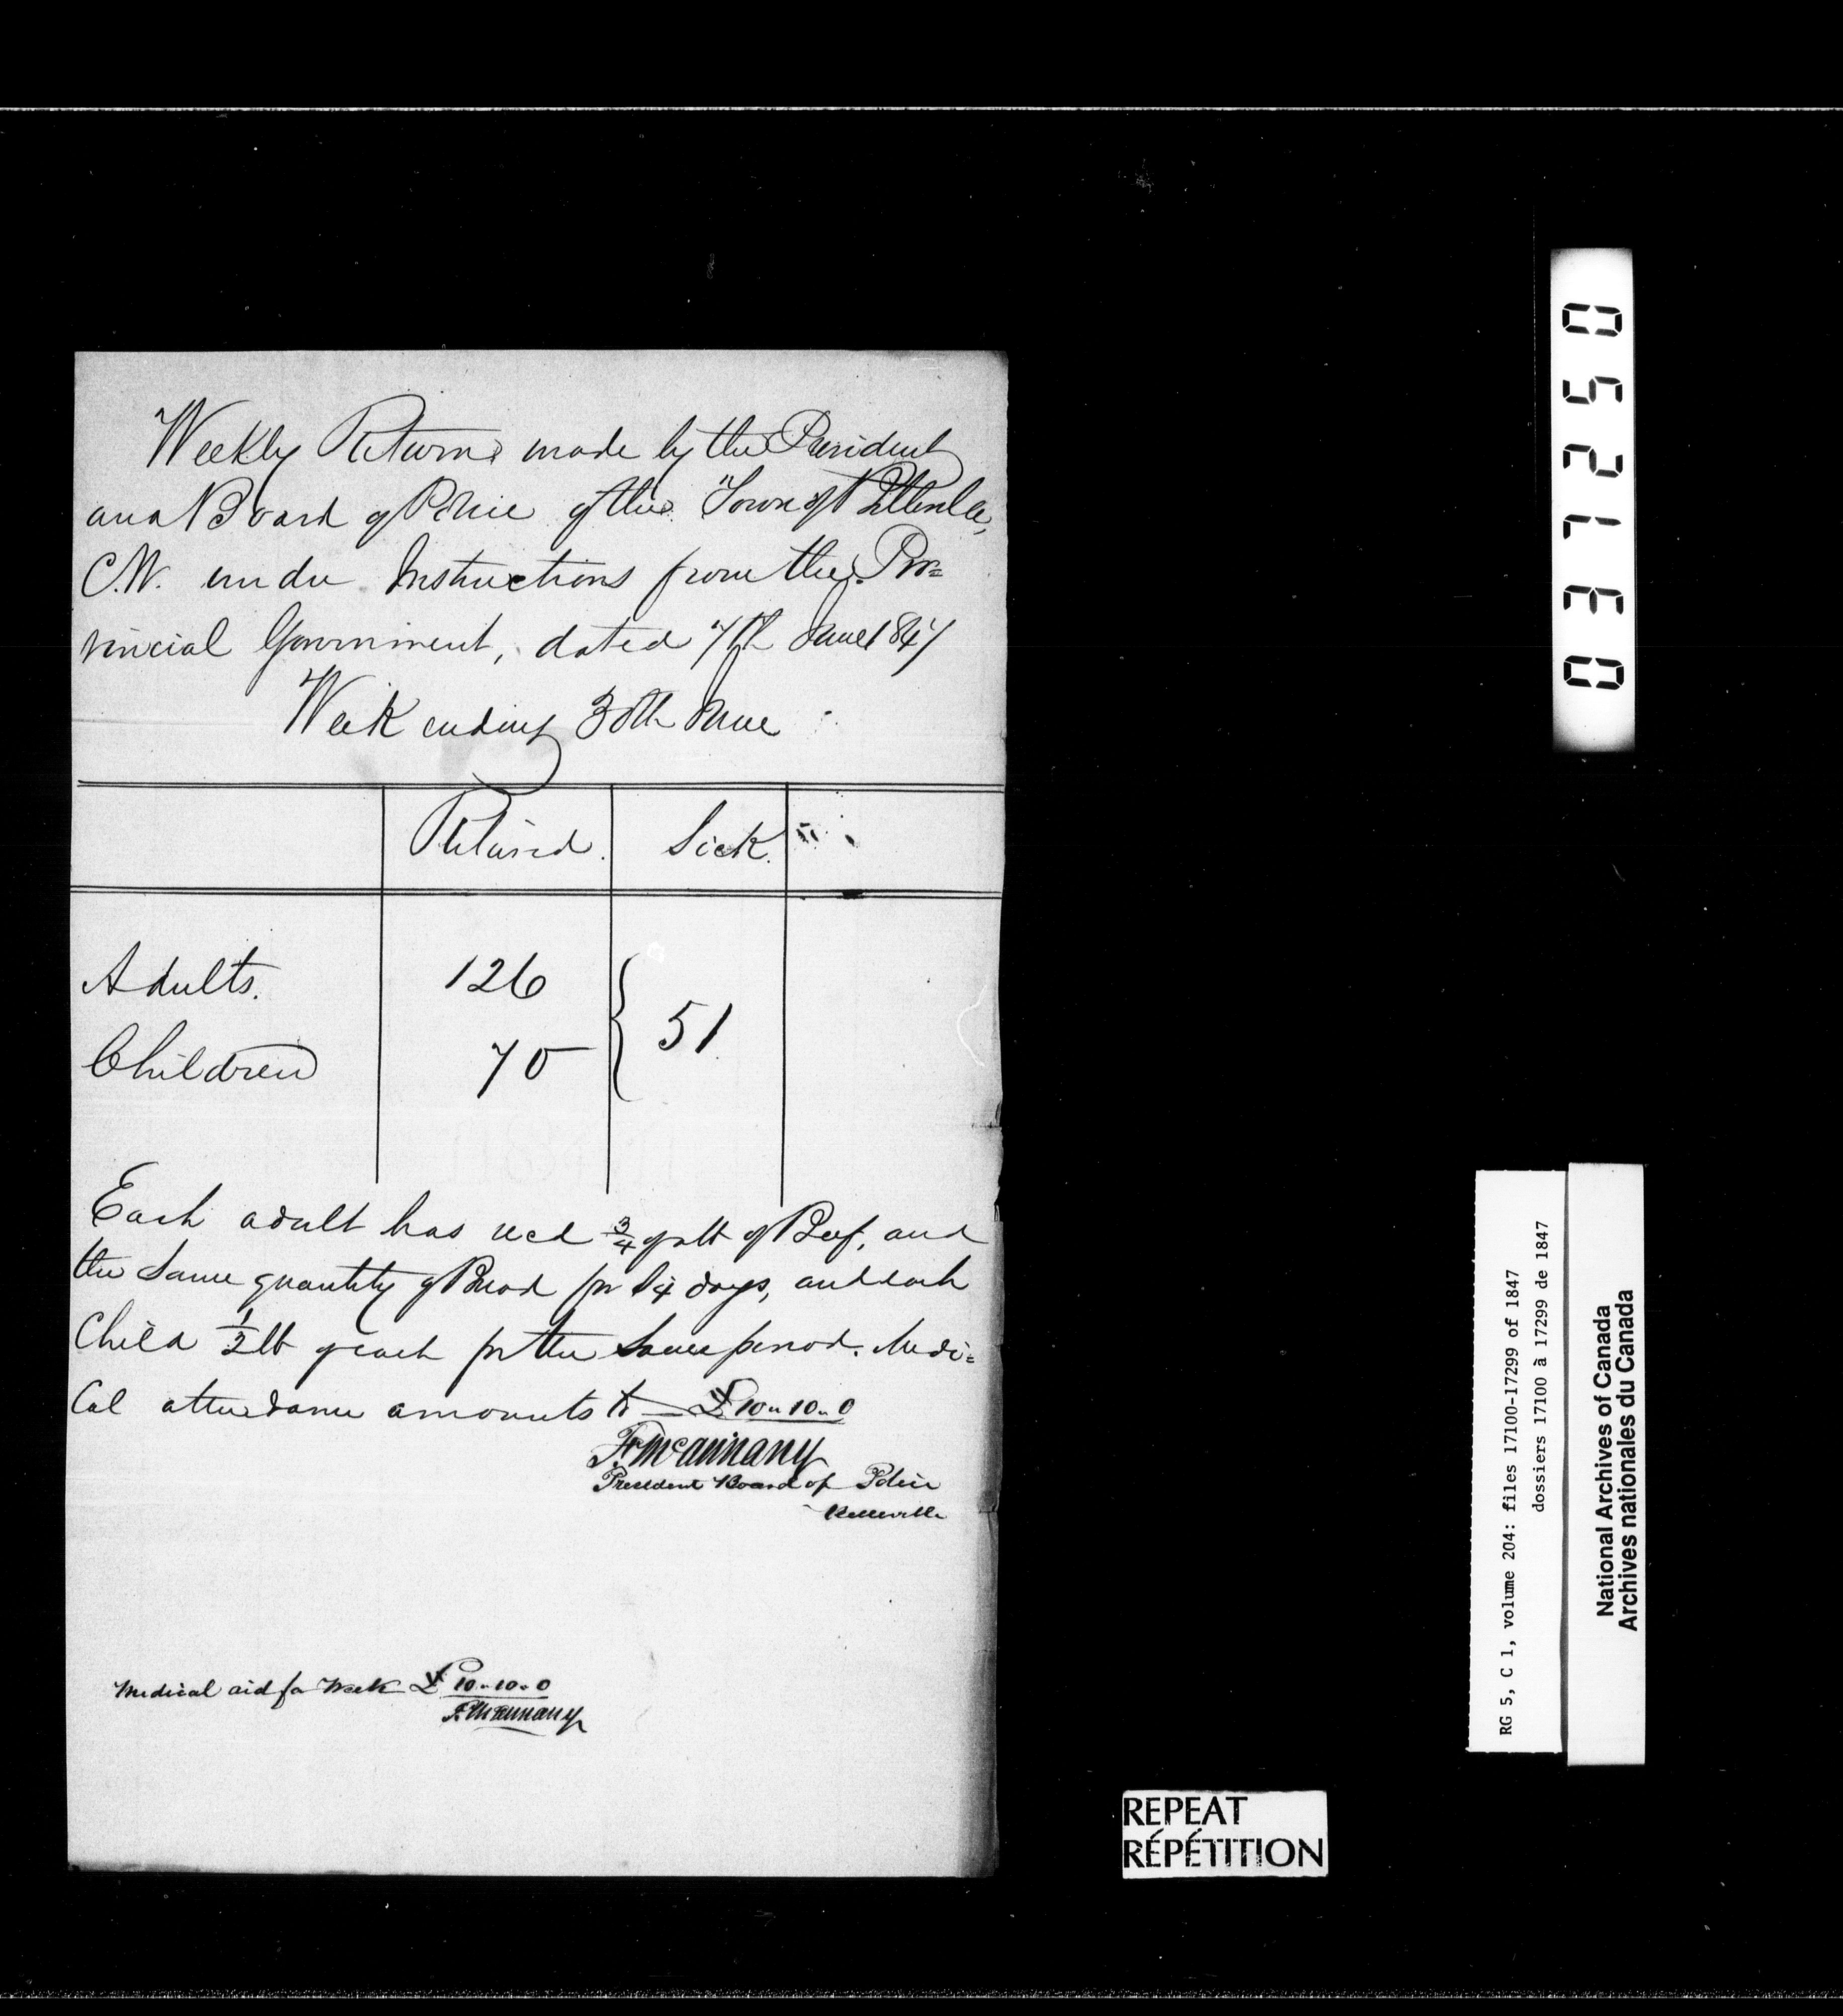 Weekly Return made by the President
and Board of Police of the Town of Belleville,
C.W. under Instructions from the Pro=
vincial Government, dated 7th June 1847
Week ending 30th June
Relieved. Sick.
Adults. 126
51
Children 70
Each adult has recd 3/4 of a lb of Beef, and
the same quantity of Bread for 14 days, and each
Child 1/2 lb of each for the same period. Medi=
cal attendance amounts to £10 " 10 " 0
F. McAnnany
President Board of Police
Belleville
Medical aid for Week £10 " 10 " 0
F. McAnnany
037250
RG 5, C 1, volume 204: files 17100-17299 of 1847
dossiers 17100 à 17299 de 1847
National Archives of Canada
Archives nationales du Canada
REPEAT
RÉPÉTITION